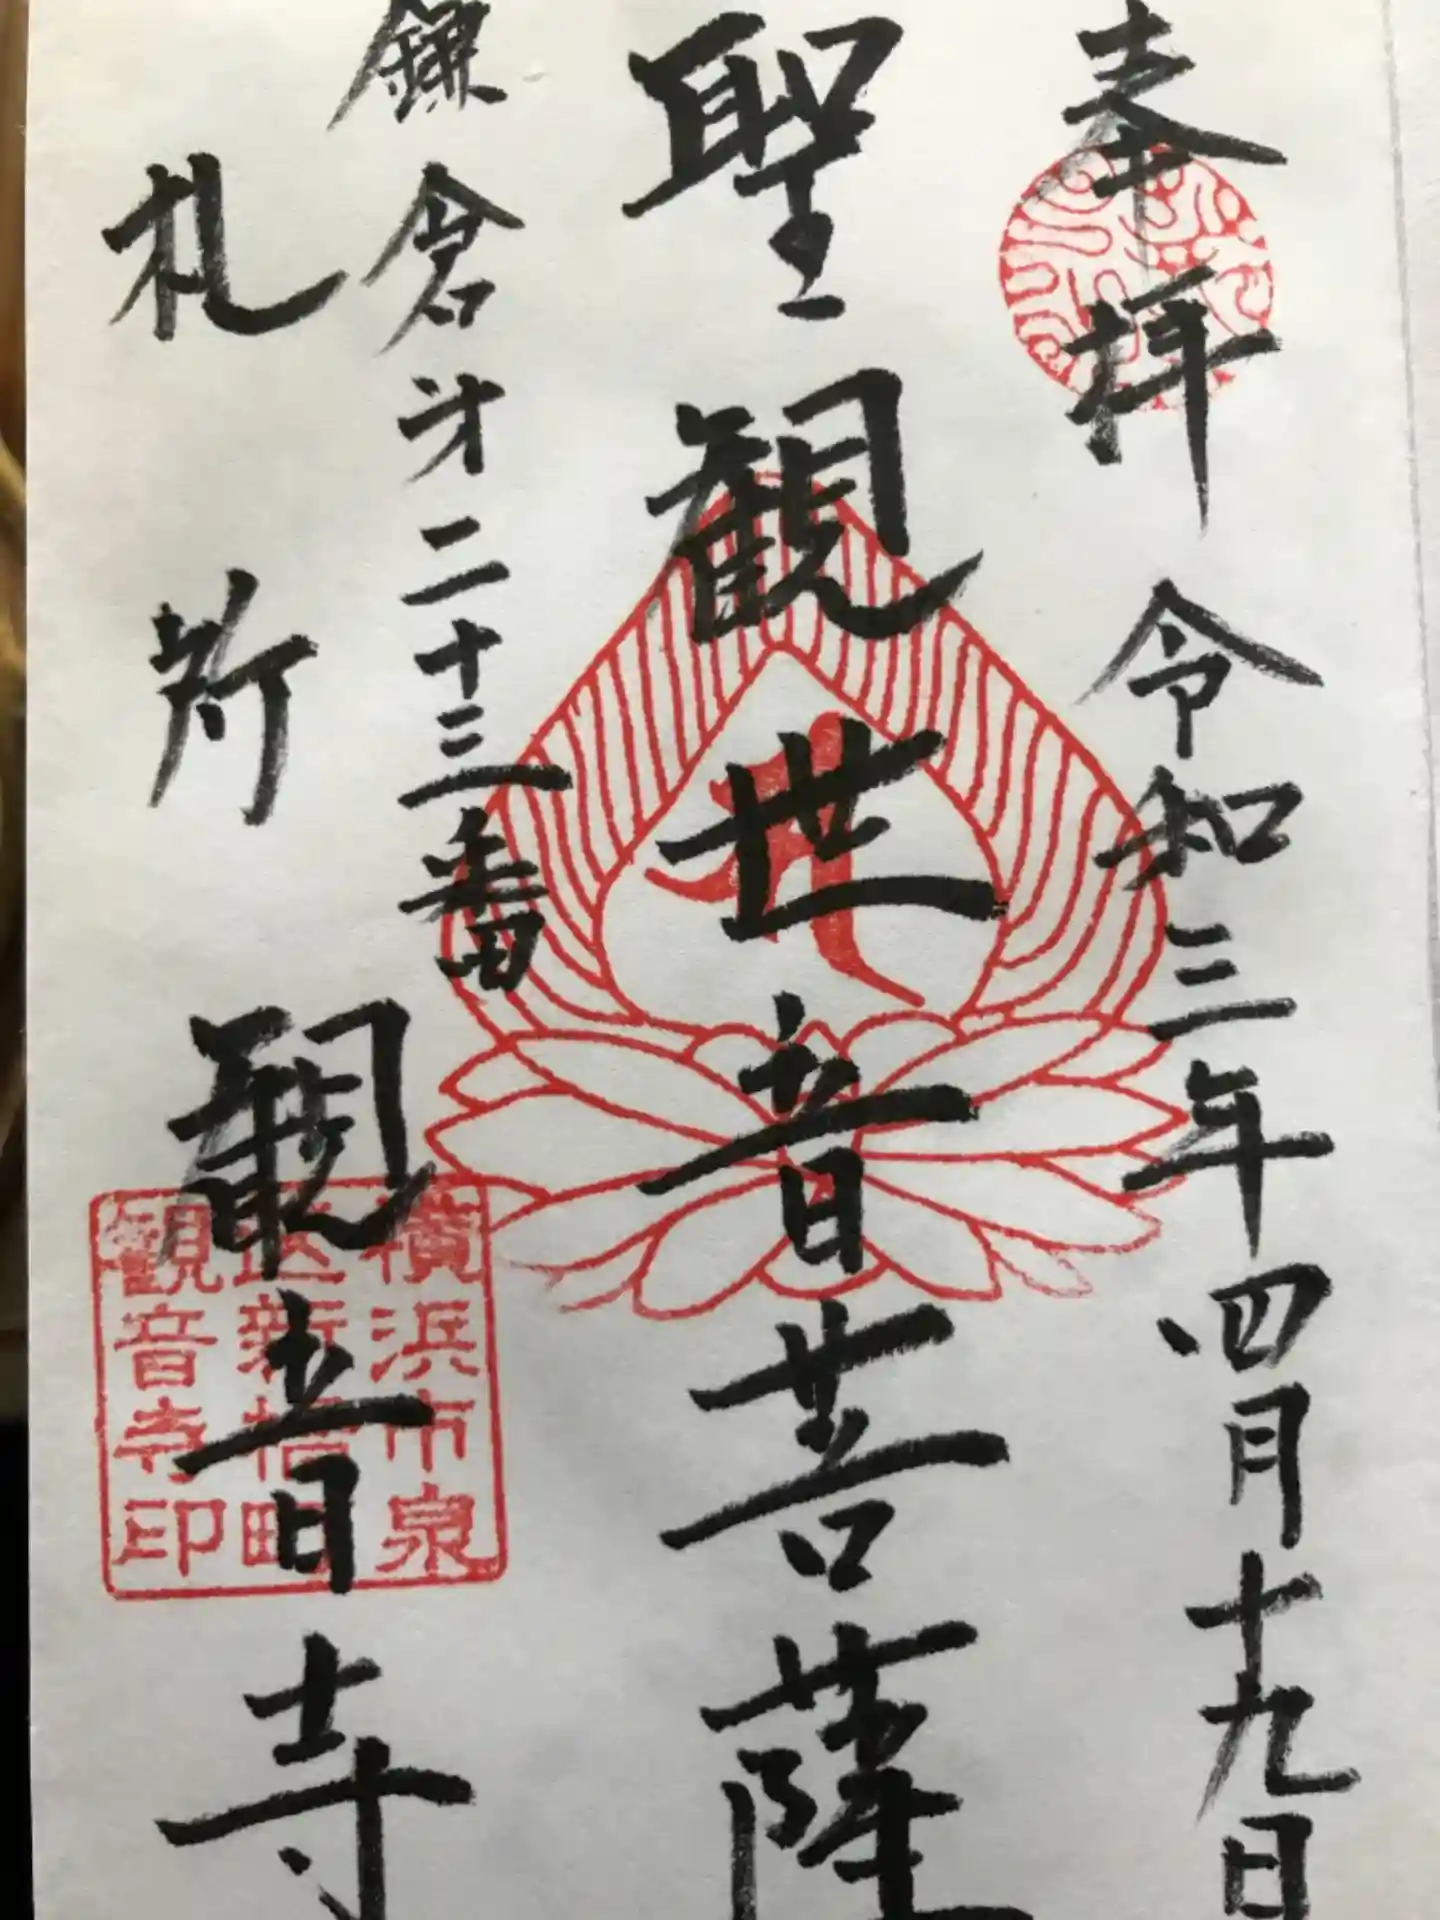 奉拝 令和三年四月十九日
聖観世音菩薩
鎌倉才二十三番
札所 観音寺
横浜市泉
区新橋町
観音寺印